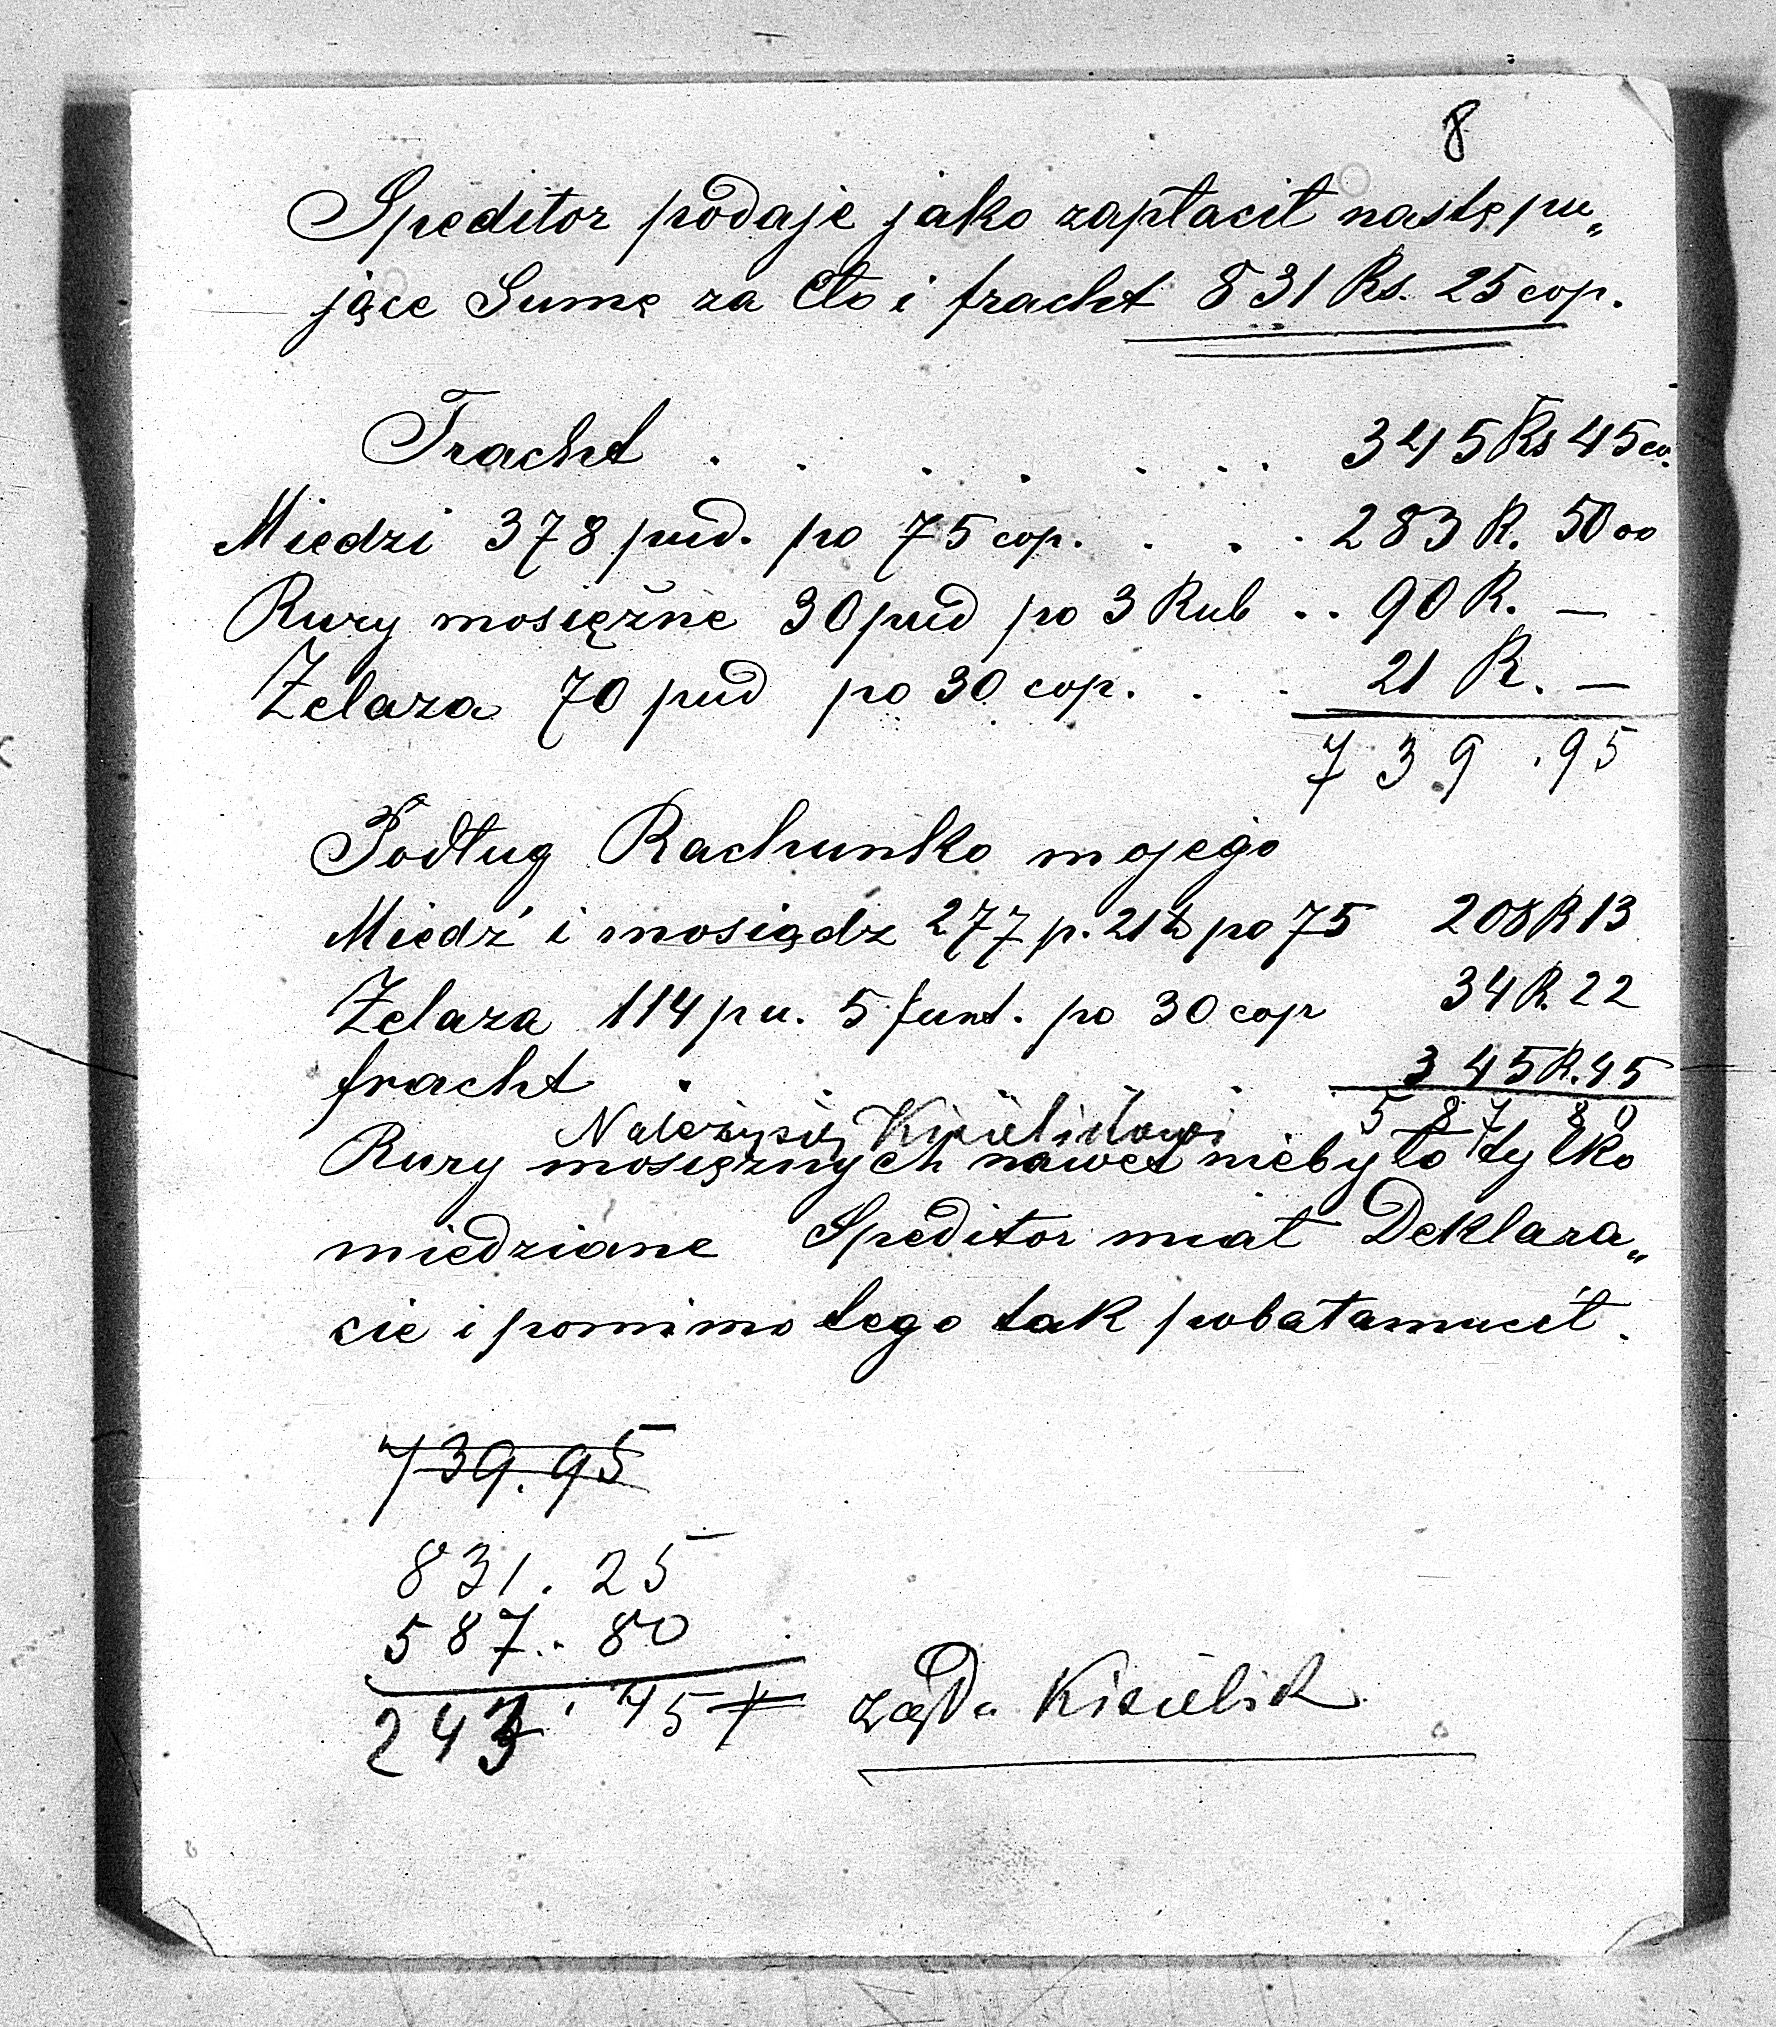 8
Speditor podaje jako zapłacił następu„
jące Sumę za Cło i fracht 831 Rs. 25 cop.
Fracht . . . . . . . 345 Rs 45 co.
Miedzi 378 pud. po 75 cop. . . . 283 R. 50 co
Rury mosiężne 30 pud po 3 Rub . . 90 R. —
Żelaza 70 pud po 30 cop. . . 21 R. —
739 . 95
Podług Rachunko mojego
Miedź i mosiądz 277 p. 21 ℔ po 75 208 R 13
Żelaza 114 pu. 5 funt. po 30 cop 34 R. 22
fracht . . 345 R. 45
Należy się Kisielikowi 587 80
Rury mosiężnych nawet niebyło tylko
miedziane Speditor miał Deklara„
cie i pomimo tego tak pobałamucił.
739.95
831. 25
587. 80
243. 45
żąda Kisielik